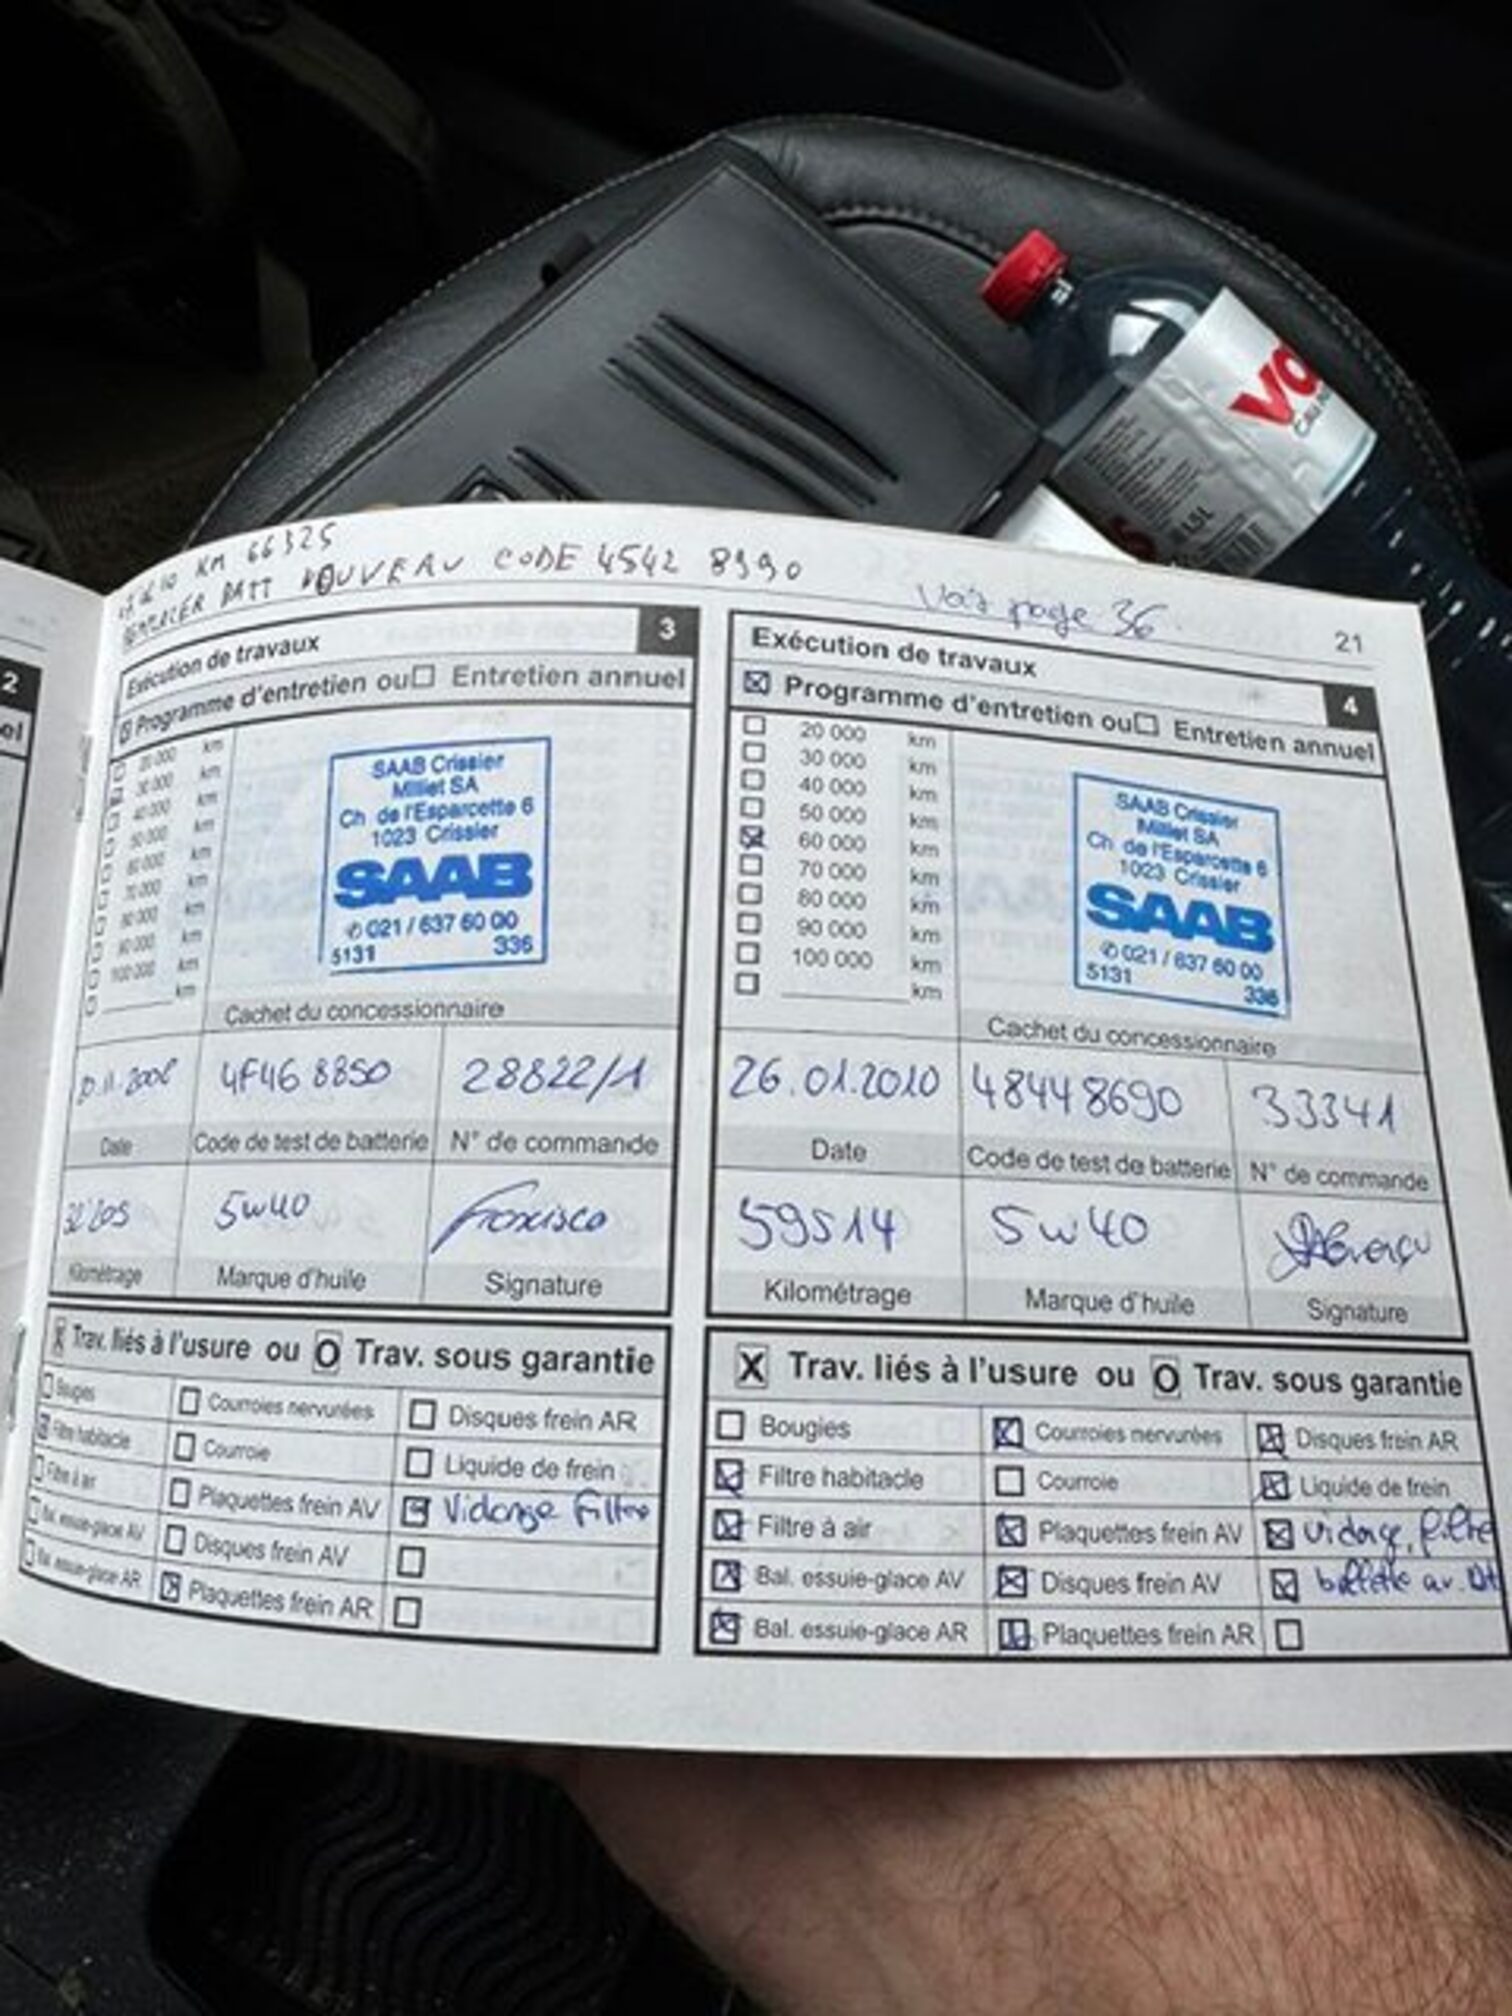 KM 66325
BATT NOUVEAU CODE 4542 8990
Voir page 36
21
2
el
Exécution de travaux 3
Programme d'entretien ou Entretien annuel
20 000 km
30 000 km
40 000 km
50 000 km
60 000 km
70 000 km
80 000 km
90 000 km
100 000 km
km
SAAB Crissier
Milliet SA
Ch de l'Esparcette 6
1023 Crissier
SAAB
✆ 021 / 637 60 00
5131 336
Cachet du concessionnaire
4F46 8850 28822/1
Date Code de test de batterie N° de commande
5w40
Kilométrage Marque d'huile Signature
X Trav. liés à l'usure ou O Trav. sous garantie
Bougies Courroies nervurées Disques frein AR
Filtre habitacle Courroie Liquide de frein
Filtre à air Plaquettes frein AV Vidange Filtre
Bal. essuie-glace AV Disques frein AV
Bal. essuie-glace AR Plaquettes frein AR
Exécution de travaux 4
Programme d'entretien ou Entretien annuel
20 000 km
30 000 km
40 000 km
50 000 km
60 000 km
70 000 km
80 000 km
90 000 km
100 000 km
km
SAAB Crissier
Milliet SA
Ch de l'Esparcette 6
1023 Crissier
SAAB
✆ 021 / 637 60 00
5131 336
Cachet du concessionnaire
26.01.2010 48448690 33341
Date Code de test de batterie N° de commande
59514 5w40
Kilométrage Marque d'huile Signature
X Trav. liés à l'usure ou O Trav. sous garantie
Bougies Courroies nervurées Disques frein AR
Filtre habitacle Courroie Liquide de frein
Filtre à air Plaquettes frein AV vidage, filtre
Bal. essuie-glace AV Disques frein AV av.
Bal. essuie-glace AR Plaquettes frein AR